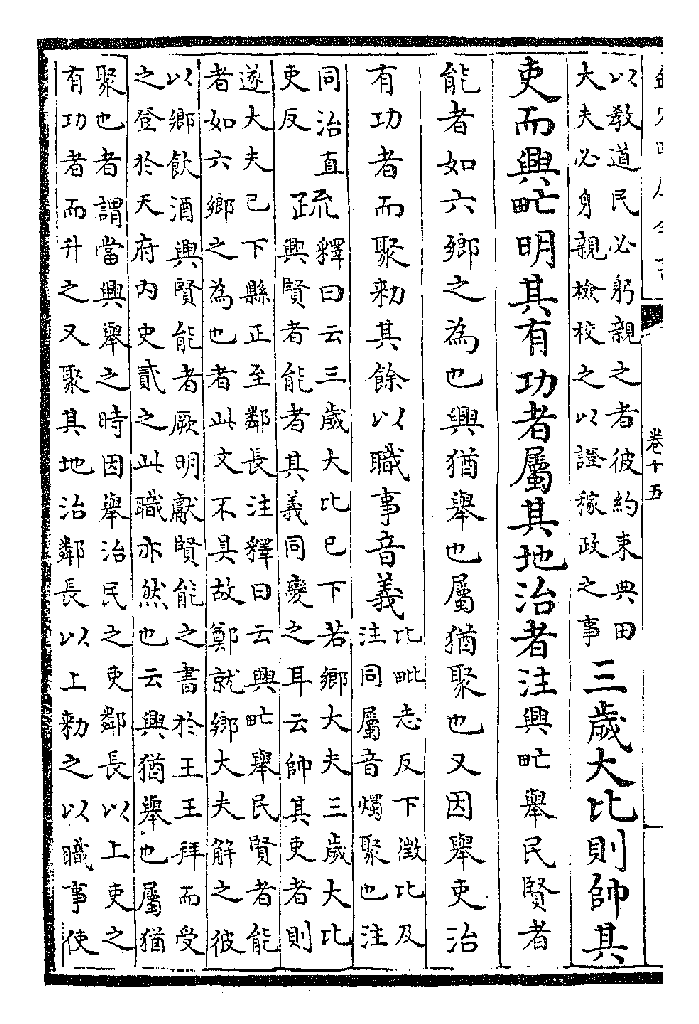 卷十五
以教道民必躬親之者彼約束典田
大夫必身親檢校之以證稼政之事
三歲大比則帥其
吏而興甿明其有功者屬其地治者注興甿舉民賢者
能者如六鄉之為也興猶舉也屬猶聚也又因舉吏治
有功者而聚勑其餘以職事音義
比毗志反下徵比及
注同屬音燭聚也注
同治直
吏反
疏
釋曰云三歲大比已下若鄉大夫三歲大比
興賢者能者其義同變之耳云帥其吏者則
遂大夫已下縣正至鄰長注釋曰云興甿舉民賢者能
者如六鄉之為也者此文不具故鄭就鄉大夫解之彼
以鄉飲酒興賢能者厥明獻賢能之書於王王拜而受
之登於天府內史貳之此職亦然也云興猶舉也屬猶
聚也者謂當興舉之時因舉治民之吏鄰長以上吏之
有功者而升之又聚其地治鄰長以上勑之以職事使